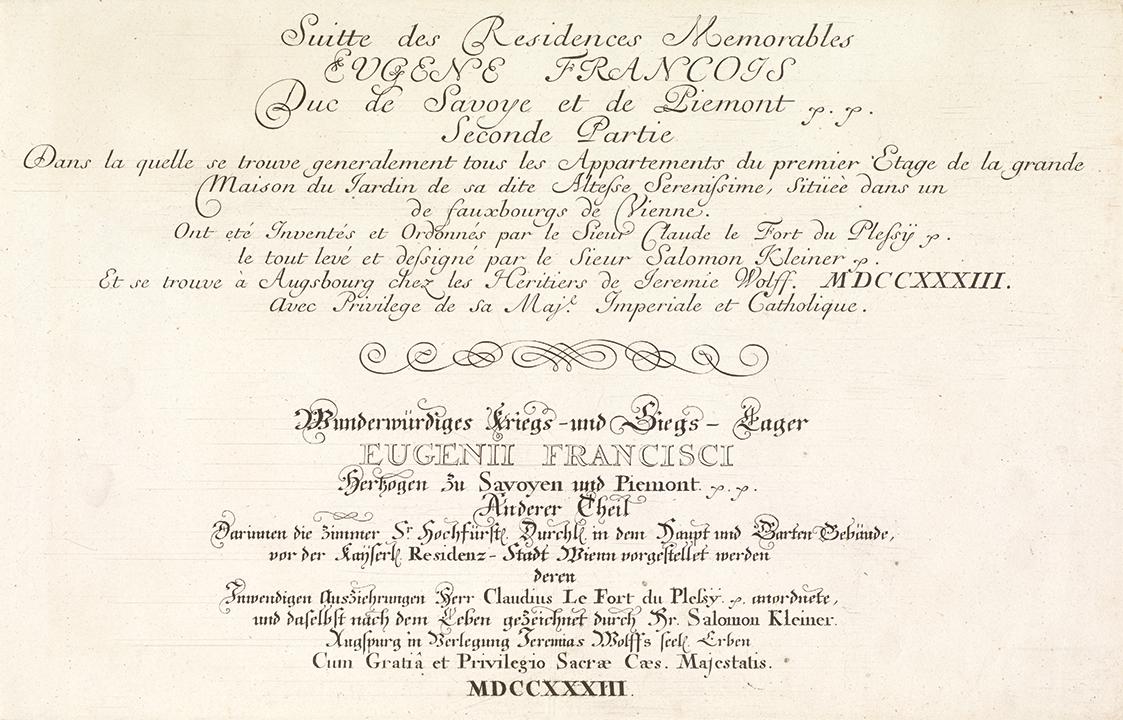 Suitte des Residences Memorables
EUGENE FRANCOIS
Duc de Savoye et de Piemont p. p.
Seconde Partie
Dans la quelle se trouve generalement tous les Appartements du premier Etage de la grande
Maison du Jardin de sa dite Altesse Serenissime, Sitüeè dans un
de fauxbourgs de Vienne.
Ont eté Inventés et Ordonnés par le Sieur Claude le Fort du Plessÿ p.
le tout levé et dessigné par le Sieur Salomon Kleiner p.
Et se trouve à Augsbourg chez les Heritiers de Jeremie Wolff. MDCCXXXIII.
Avec Privilege de sa Maj.e Imperiale et Catholique.
Wunderwürdiges Kriegs-und Siegs-Lager
EUGENII FRANCISCI
Hertzogen zu Savoyen und Piemont. p. p.
Anderer Theil
Darinnen die Zimmer Sr. Hochfürstl. Durchl. in dem Haupt und Garten Gebäude,
vor der Kaÿserl. Residenz-Stadt Wienn vorgestellet werden
deren
Inwendigen Ausziehrungen Herr Claudius Le Fort du Plessy. p. anordnete,
und daselbst nach dem Leben gezeichnet durch Hr. Salomon Kleiner.
Augspurg in Verlegung Jeremias Wolffs seel. Erben
Cum Gratiâ et Privilegio Sacræ Cæs. Majestatis.
MDCCXXXIII.